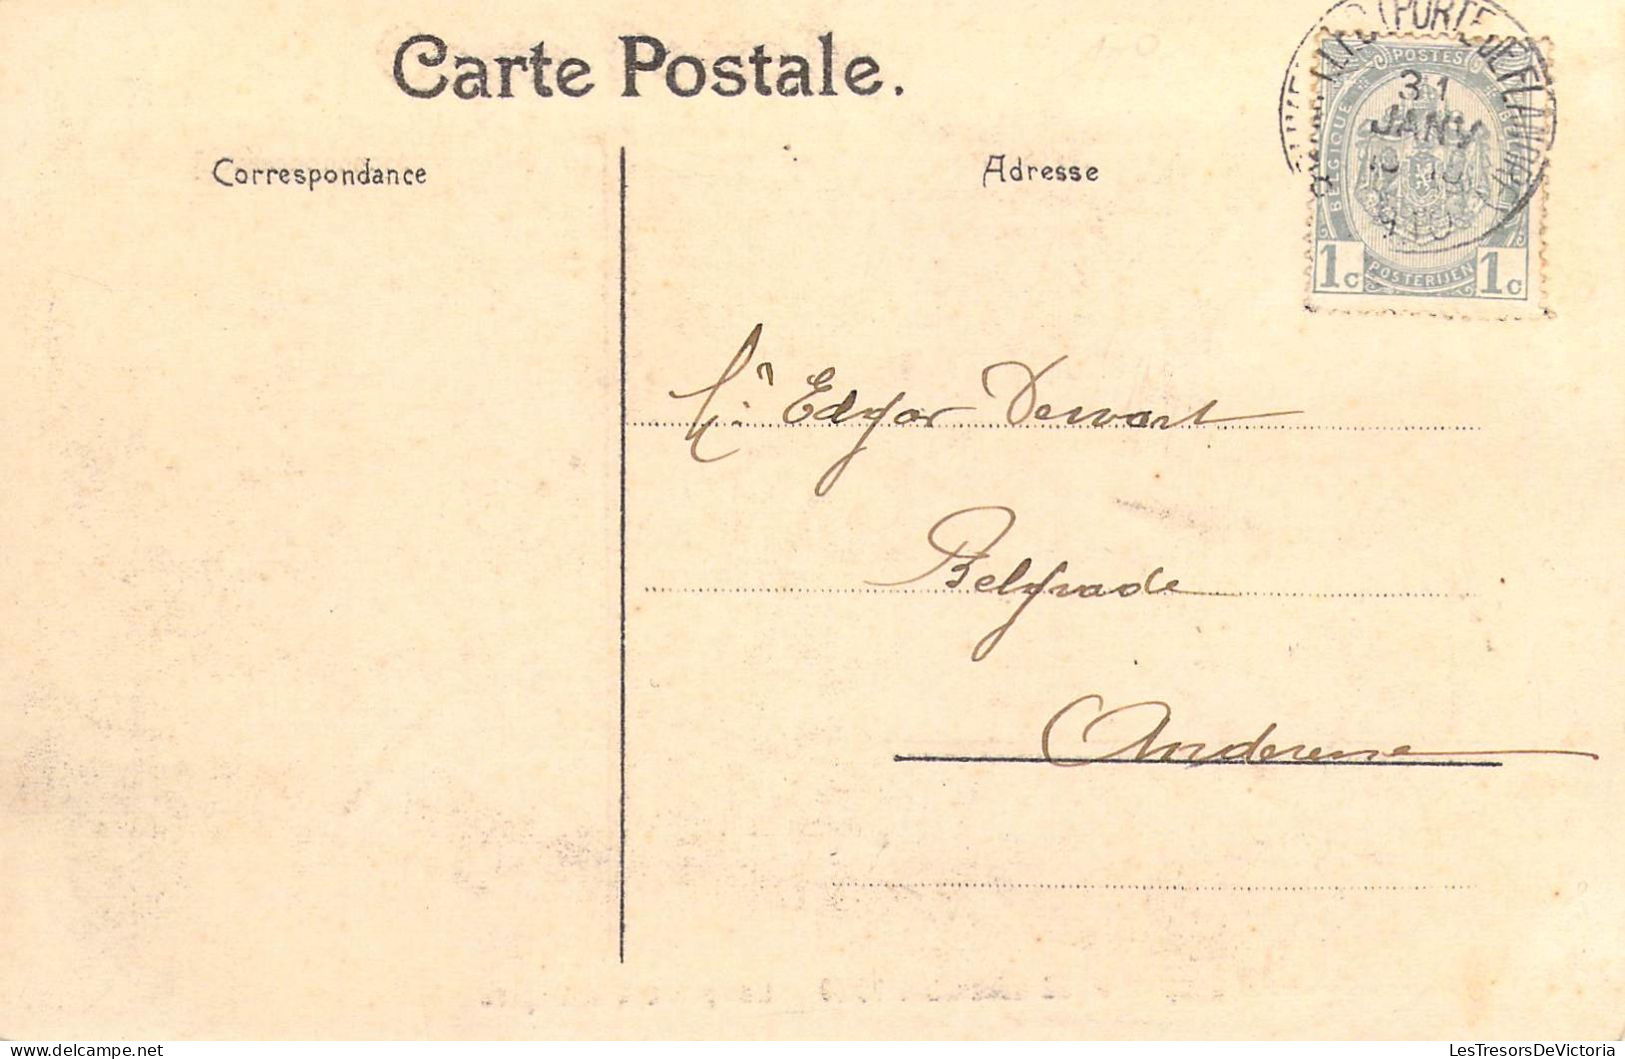 Carte Postale.
Correspondance
Adresse
(PORTE DE FLANDRE
POSTES
31
JANV
BELGIQUE
1c
POSTERIJEN
1c
Edgar
Belgrade
Andenne
LesTresorsDeVictoria
delcampe.net
LesTresorsDeVictoria